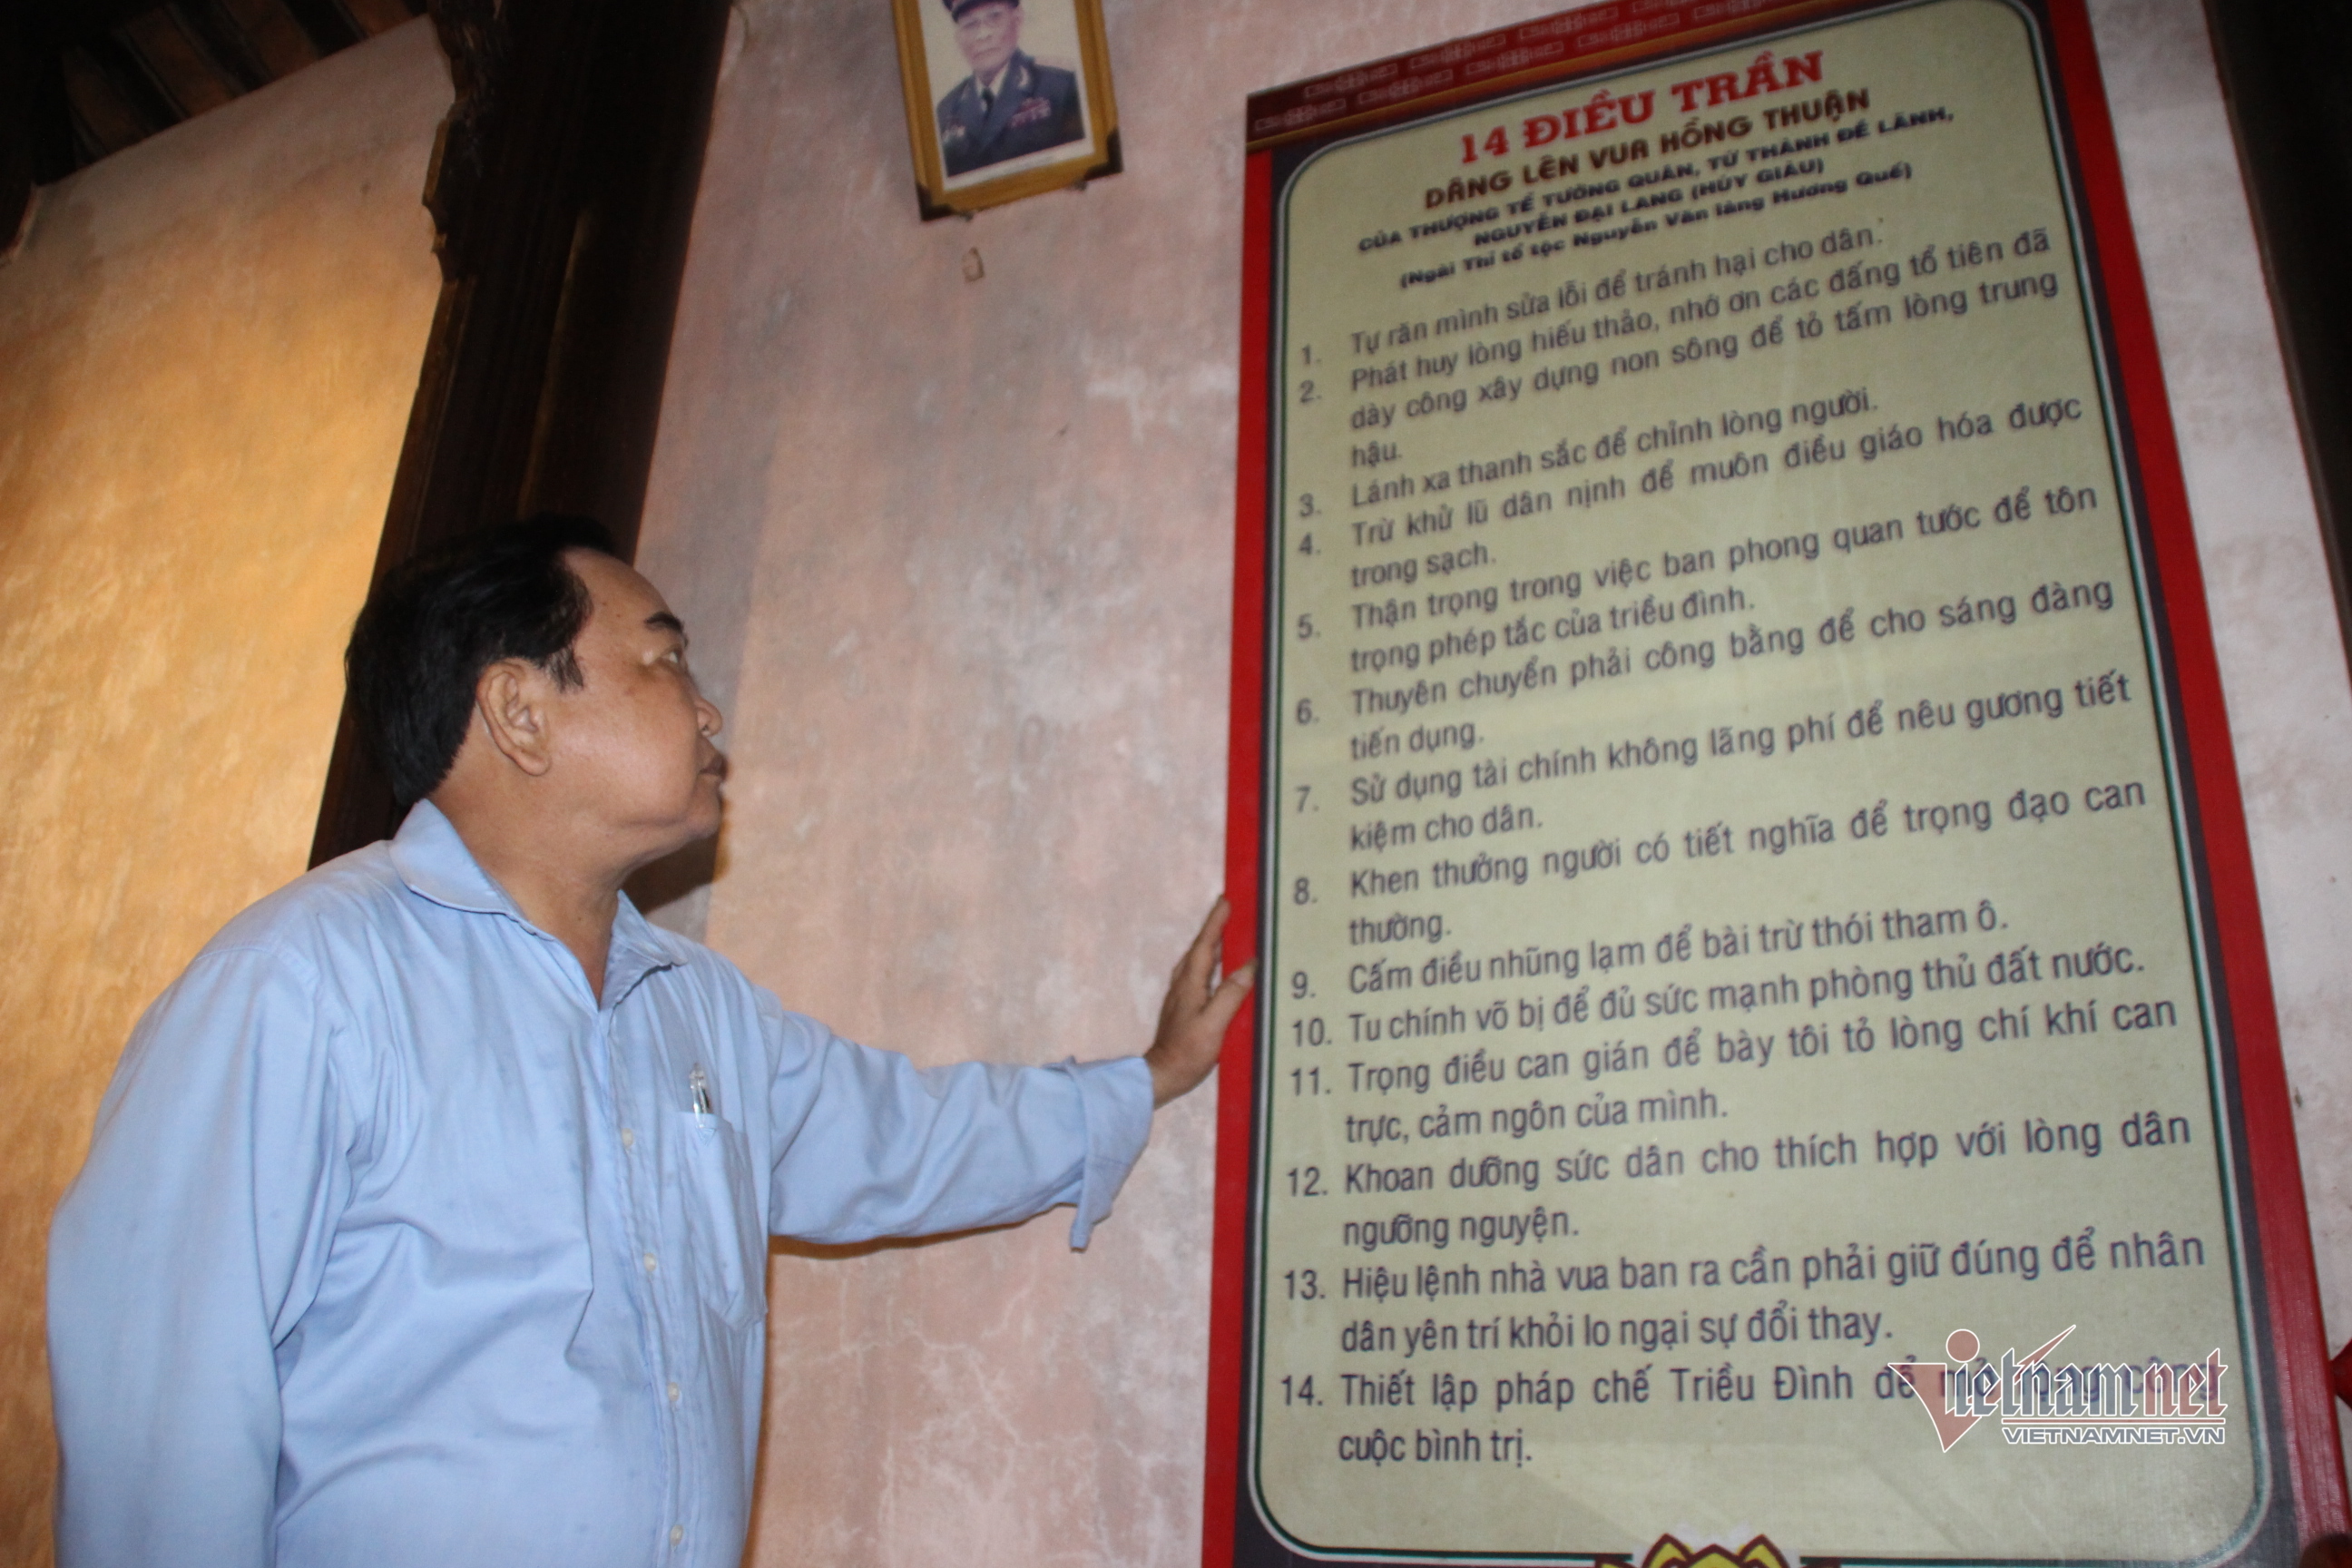 14 ĐIỀU TRẦN
DÂNG LÊN VUA HỒNG THUẬN
CỦA THƯỢNG TỂ TƯỚNG QUÂN, TỨ THÀNH ĐỀ LÃNH,
NGUYỄN ĐẠI LANG (HÚY GIÀU)
(Ngài Thỉ tổ tộc Nguyễn Văn làng Hương Quế)
1. Tự răn mình sửa lỗi để tránh hại cho dân.
2. Phát huy lòng hiếu thảo, nhớ ơn các đấng tổ tiên đã
dày công xây dựng non sông để tỏ tấm lòng trung
hậu.
3. Lánh xa thanh sắc để chỉnh lòng người.
4. Trừ khử lũ dân nịnh để muôn điều giáo hóa được
trong sạch.
5. Thận trọng trong việc ban phong quan tước để tôn
trọng phép tắc của triều đình.
6. Thuyên chuyển phải công bằng để cho sáng đàng
tiến dụng.
7. Sử dụng tài chính không lãng phí để nêu gương tiết
kiệm cho dân.
8. Khen thưởng người có tiết nghĩa để trọng đạo can
thường.
9. Cấm điều nhũng lạm để bài trừ thói tham ô.
10. Tu chính võ bị để đủ sức mạnh phòng thủ đất nước.
11. Trọng điều can gián để bày tôi tỏ lòng chí khí can
trực, cảm ngôn của mình.
12. Khoan dưỡng sức dân cho thích hợp với lòng dân
ngưỡng nguyện.
13. Hiệu lệnh nhà vua ban ra cần phải giữ đúng để nhân
dân yên trí khỏi lo ngại sự đổi thay.
14. Thiết lập pháp chế Triều Đình để mở rộng công
cuộc bình trị.
Vietnamnet
VIETNAMNET.VN